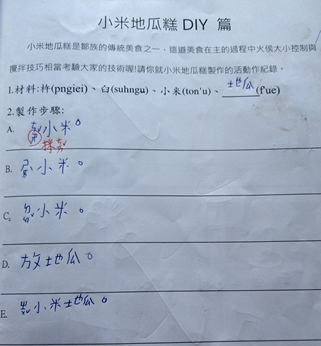 小米地瓜糕 DIY 篇
小米地瓜糕是鄒族的傳統美食之一，這道美食在主的過程中火侯大小控制與
攪拌技巧相當考驗大家的技術喔!請你就小米地瓜糕製作的活動作紀錄。
1.材料:杵(pngiei)、臼(suhngu)、小米(ton'u)、地瓜(f'ue)
2.製作步驟:
A. 小米。
B. 小米。
C. 小米。
D. 放地瓜。
E. 小米地瓜。